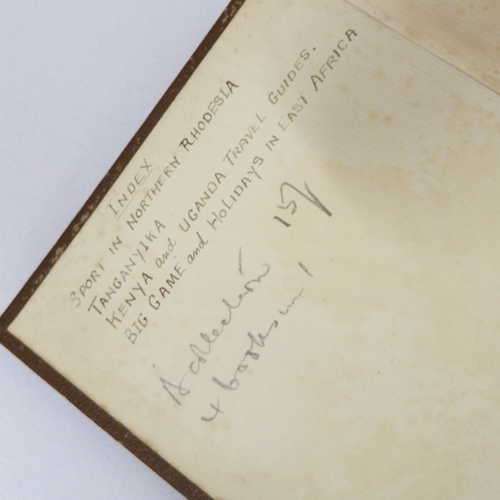 INDEX
SPORT IN NORTHERN RHODESIA
TANGANYIKA
KENYA and UGANDA TRAVEL GUIDES.
BIG GAME and HOLIDAYS IN EAST AFRICA
15/
A collection
4 books in 1